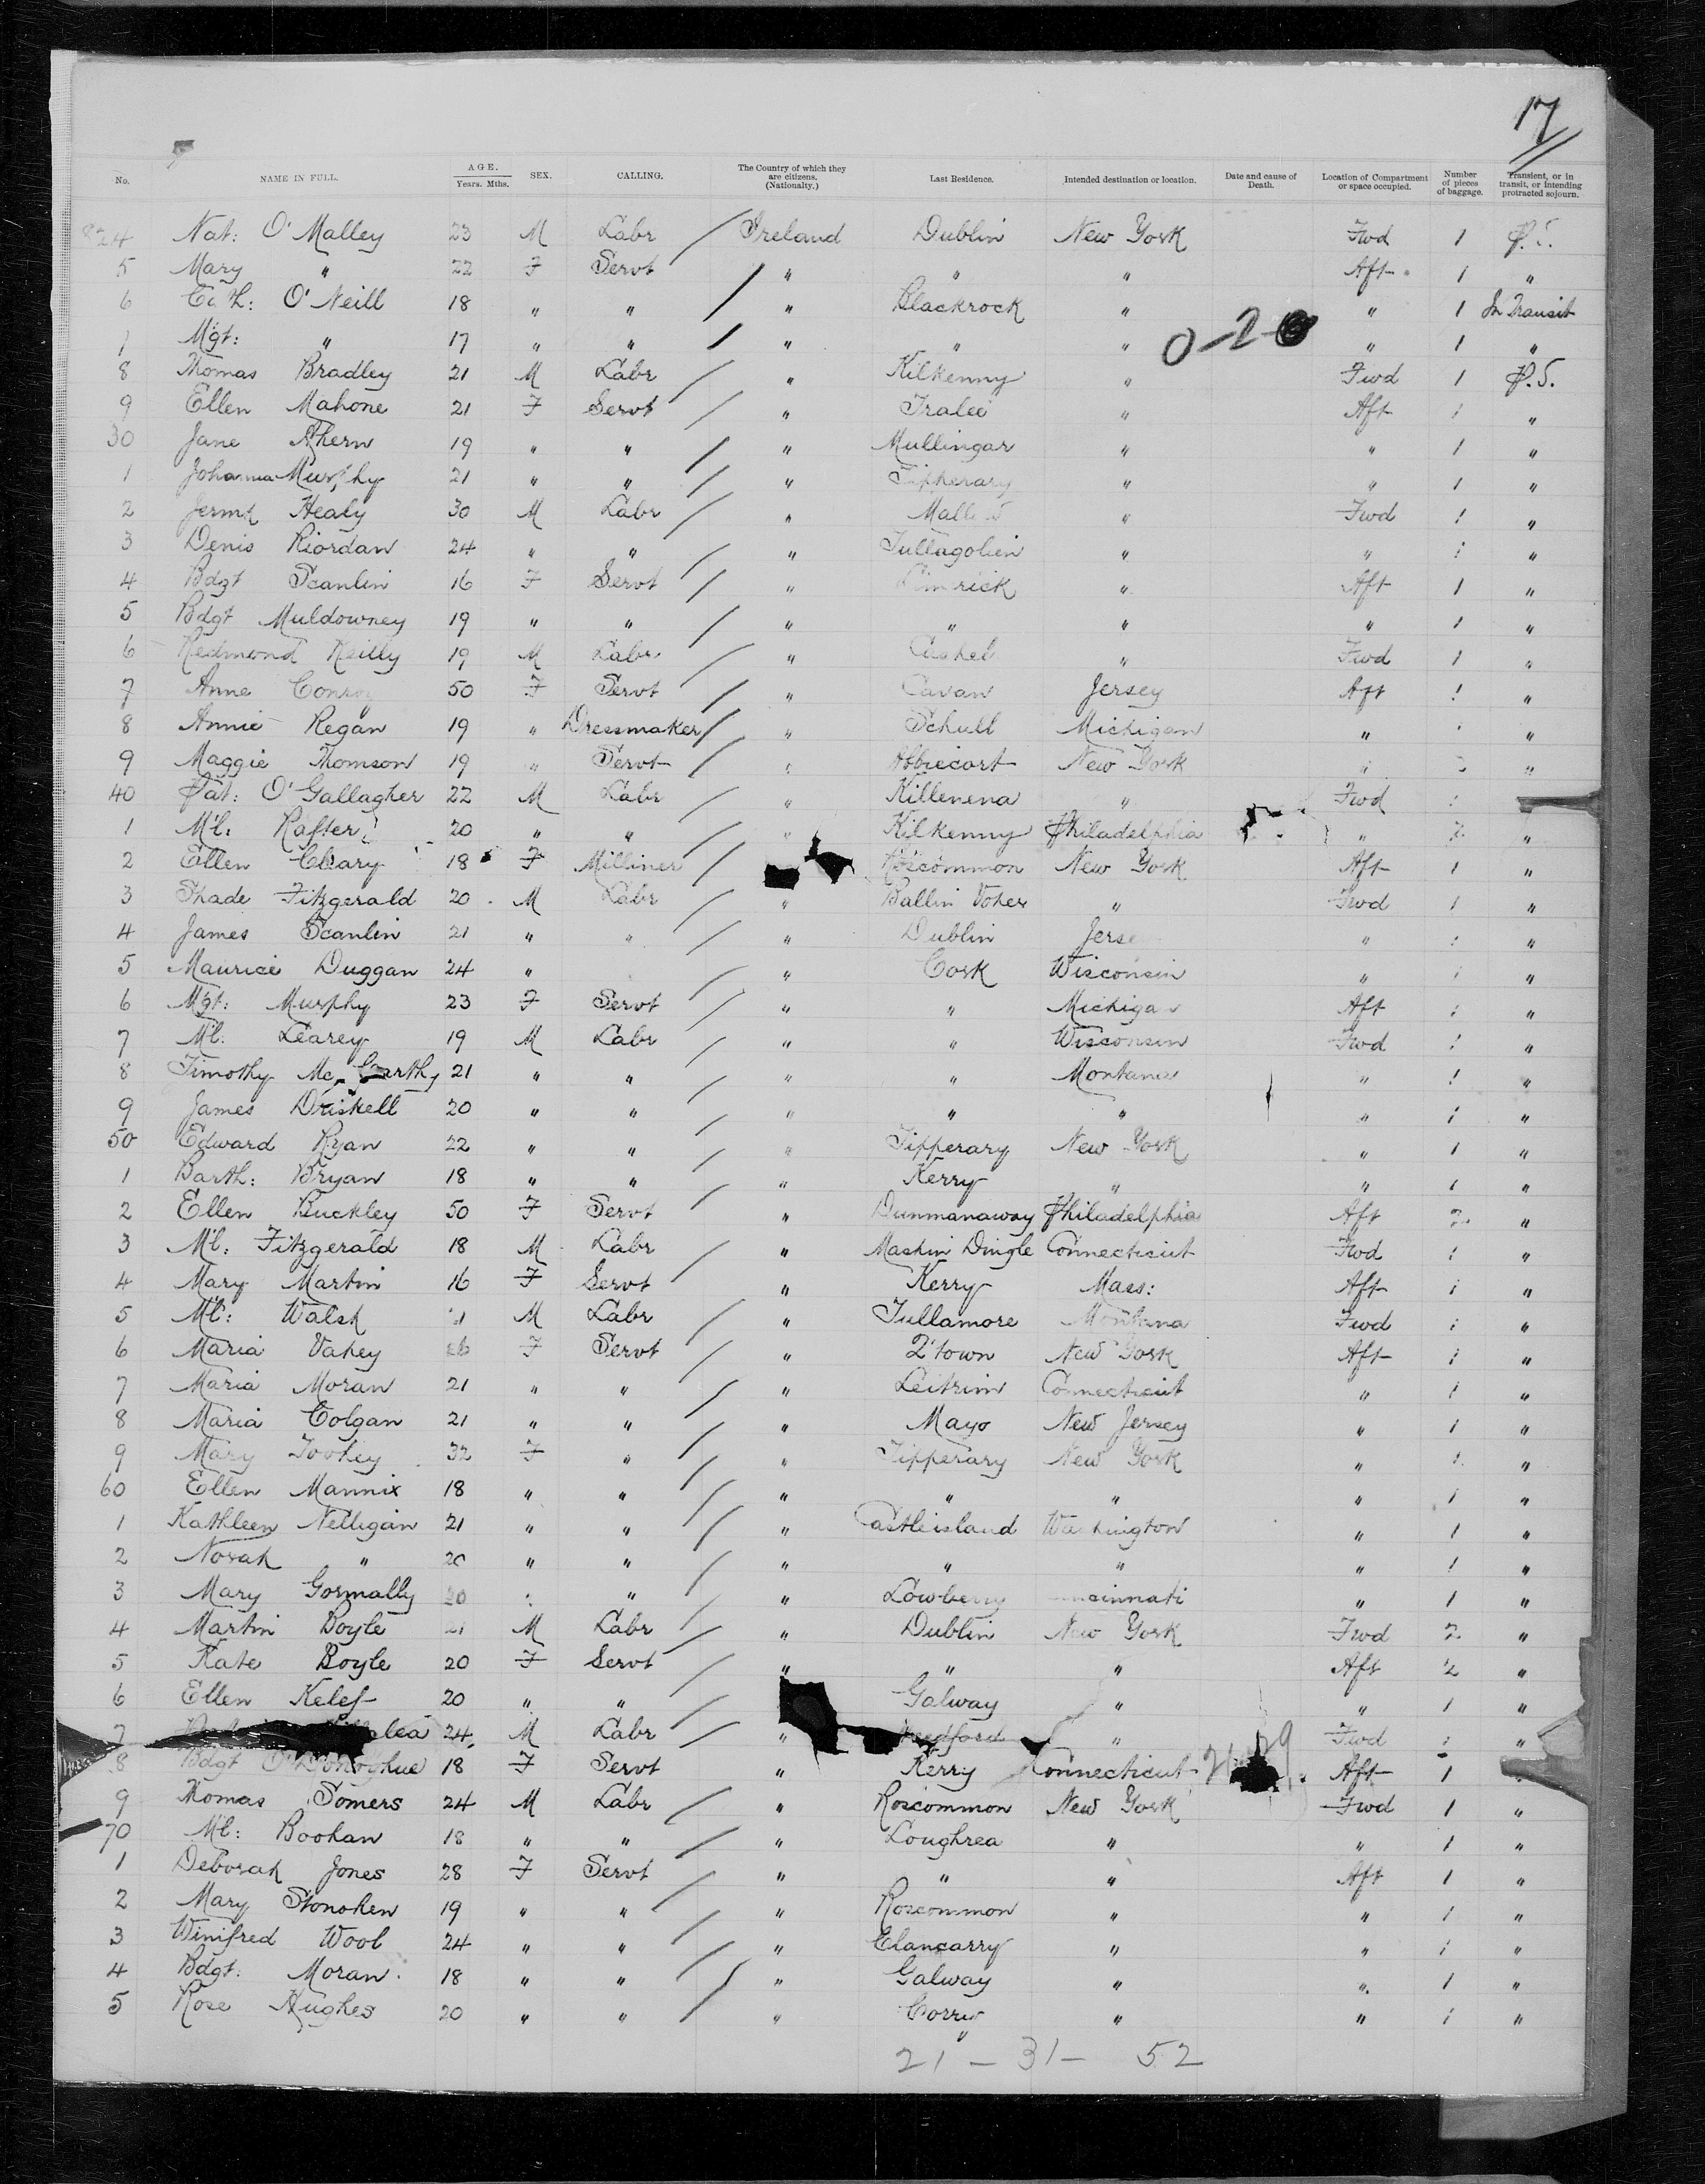 17
No. NAME IN FULL. AGE. Years. Mths. SEX. CALLING. The Country of which they are citizens. (Nationality.) Last Residence. Intended destination or location. Date and cause of Death. Location of Compartment or space occupied. Number of pieces of baggage. Transient, or in transit, or intending protracted sojourn.
824 Nat: O'Malley 23 M Labr / Ireland Dublin New York Fwd 1 P.S.
5 Mary " 22 F Servt / " " " Aft 1 "
6 O'Neill 18 " " / " Blackrock " " 1 In Transit
7 Mgt: " 17 " " / " " " " 1 "
0-2-
8 Thomas Bradley 21 M Labr / " Kilkenny " Fwd 1 P.S.
9 Ellen Mahone 21 F Servt / " Tralee " Aft 1 "
30 Jane Ahern 19 " " / " Mullingar " " 1 "
1 Johanna Murphy 21 " " / " Tipperary " " 1 "
2 Jermh Healy 30 M Labr / " " Fwd 1 "
3 Denis Riordan 24 " " / " Tullagohen " " 1 "
4 Bdgt Scanlin 16 F Servt / " Limrick " Aft 1 "
5 Bdgt Muldowney 19 " " / " " " " 1 "
6 Redmond Reilly 19 M Labr / " Cashel " Fwd 1 "
7 Anne Conroy 50 F Servt / " Cavan Jersey Aft 1 "
8 Annie Regan 19 " Dressmaker / " Schull Michigan " "
9 Maggie Thomson 19 " Servt / " Abbiecort New York " "
40 Pat: O'Gallagher 22 M Labr / " Killenena " Fwd 1
1 Ml: Rafter 20 " " / " Kilkenny Philadelphia " 2 "
2 Ellen Cleary 18 F Milliner / Roscommon New York Aft 1 "
3 Thade Fitzgerald 20 M Labr / " Ballin Voher " Fwd 1 "
4 James Scanlin 21 " " / " Dublin Jerse " 1 "
5 Maurice Duggan 24 " / " Cork Wisconsin " 1 "
6 Mgt: Murphy 23 F Servt / " " Michigan Aft 1 "
7 Ml: Learey 19 M Labr / " " Wisconsin Fwd 1 "
8 Timothy Mc Carthy 21 " " / " " Montana " 1 "
9 James Driskell 20 " " / " " " " 1 "
50 Edward Ryan 22 " " / " Tipperary New York " 1 "
1 Barth: Bryan 18 " " / " Kerry " " 1 "
2 Ellen Buckley 50 F Servt / " Dunmanaway Philadelphia Aft 2 "
3 Ml: Fitzgerald 18 M Labr / " Mashin Dingle Connecticut Fwd 1 "
4 Mary Martin 16 F Servt " Kerry Mass: Aft 1 "
5 Ml: Walsh M Labr / " Tullamore Montana Fwd 1 "
6 Maria Vahey F Servt / " Q'town New York Aft 1 "
7 Maria Moran 21 " " / " Leitrim Connecticut " 1 "
8 Maria Colgan 21 " " / " Mayo New Jersey " 1 "
9 Mary Toohey 32 F " / " Tipperary New York " 1 "
60 Ellen Mannix 18 " " / " " " " 1 "
1 Kathleen Nelligan 21 " " / " Castleisland Washington " 1 "
2 Norah " 20 " " / " " " " 1 "
3 Mary Gormally 20 " " / " Lowberry Cincinnati " 1 "
4 Martin Boyle 21 M Labr / " Dublin New York Fwd 2 "
5 Kate Boyle 20 F Servt / " " " Aft 2 "
6 Ellen Kelef 20 " " / Galway " " 1 "
7 24 M Labr / " " Fwd 1 "
8 Bdgt O'Donoghue 18 F Servt " Kerry Connecticut Aft 1 "
9 Thomas Somers 24 M Labr / " Roscommon New York Fwd 1 "
70 Ml: Boohan 18 " " / " Loughrea " " 1 "
1 Deborah Jones 28 F Servt / " " " Aft 1 "
2 Mary Stonohen 19 " " / " Roscommon " " 1 "
3 Winifred Wool 24 " " / " Elancarry " " 1 "
4 Bdgt: Moran 18 " " / " Galway " " 1 "
5 Rose Hughes 20 " " / " Corry " " 1 "
21 - 31 - 52